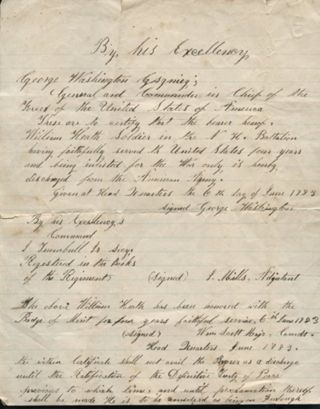 By, his Excellency,
George Washington Esquier;
General and Commander in Chief of the
Forces of the United States of America
These are to certify that the bearer hereof
William Heath Soldier in the N H Battalion
having faithfully served the United States four years
and being inlisted for the War only is hereby
discharged from the American Army.
Given at Head Quarters the 6th day of June 1783
signed George Washington
By his Excellency,s
Command
J Trumbull Jr
Registered in the Books
of the Regiment) (signed) J. Mills, Adjutent
The above William Heath has been honored with the
Badge of Merit for four years faithful service, 6th June 1783
(signed) Wm Scott Major
Head Quarters June 1783.
the within Certificate shall not avail the Bearer as a discharge
until the Ratification of the Definitive Treaty of Peace
previous to which time and until proclamation thereof
shall be made He is to be considered as being on Furlough